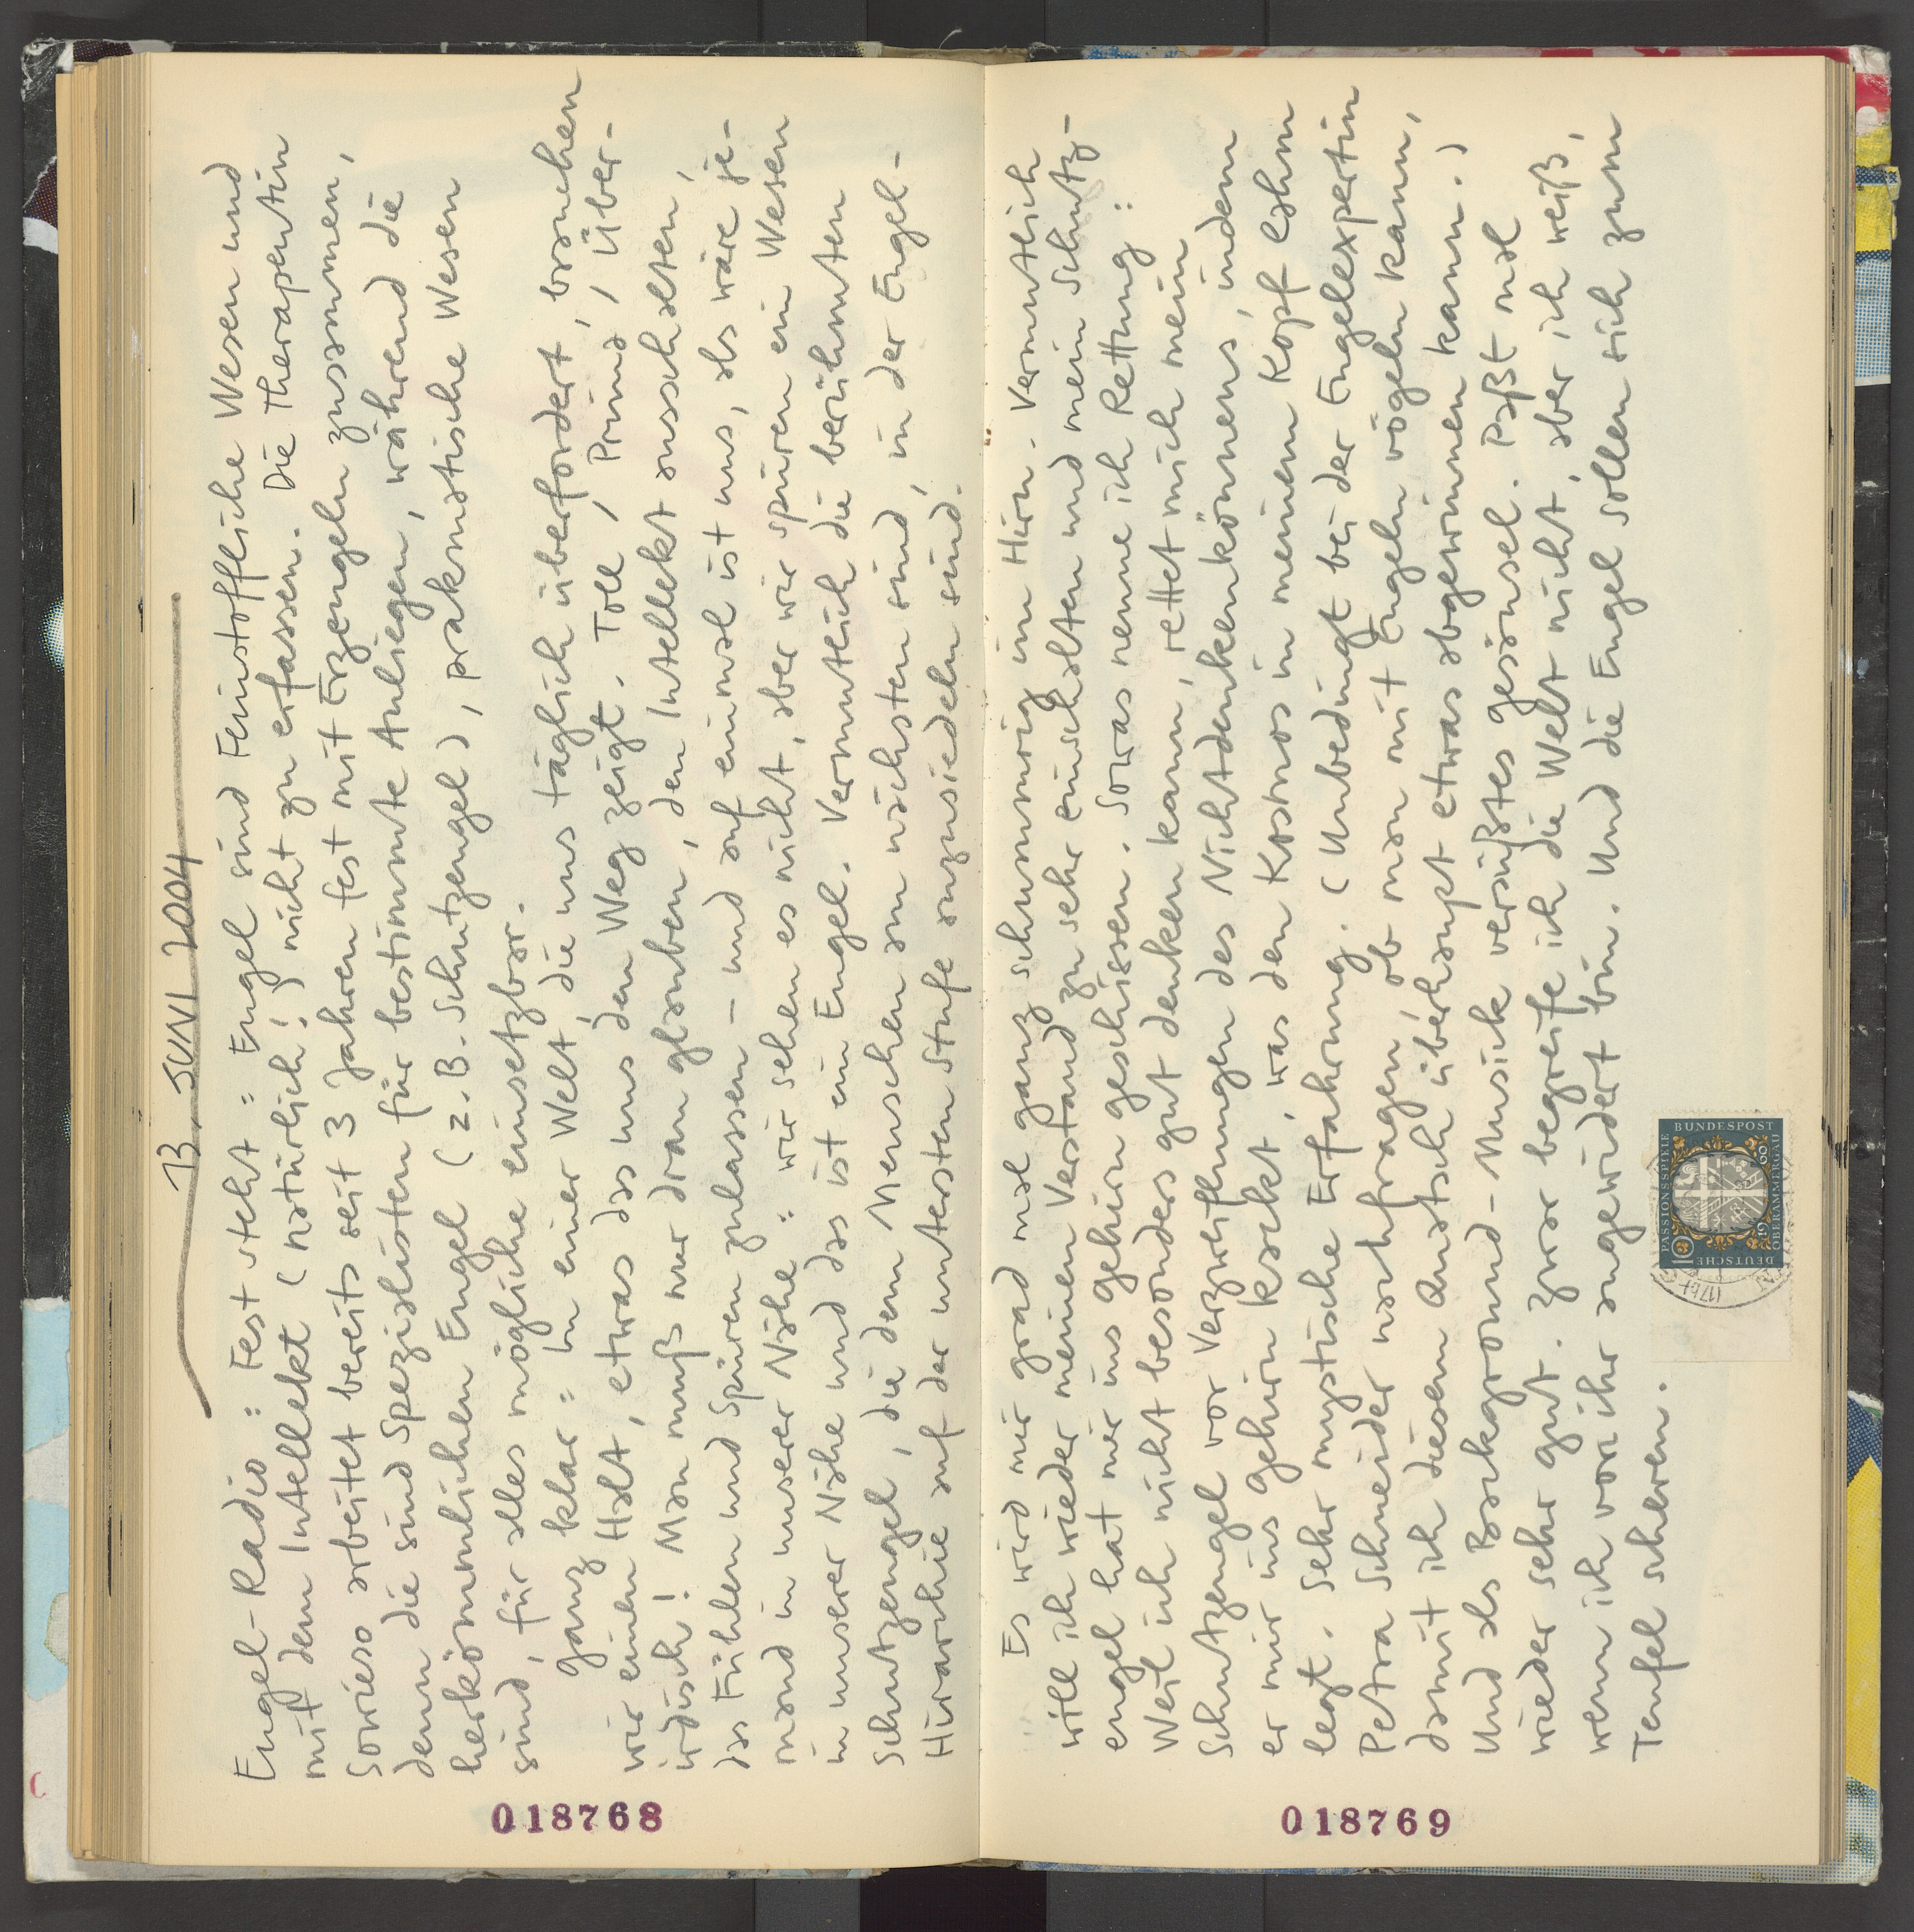 13. JUNI 2004
Engel-Radio: Fest steht: Engel sind feinstoffliche Wesen und
mit dem Intellekt (natürlich!) nicht zu erfassen. Die Therapeutin
Sowieso arbeitet bereits seit 3 Jahren fest mit Erzengeln zusammen,
denn die sind Spezialisten für bestimmte Anliegen, während die
herkömmlichen Engel (z.B. Schutzengel), praknatische Wesen
sind, für alles mögliche einsetzbar.
Ganz klar: In einer Welt, die uns täglich überfordert, brauchen
wir einen Halt, etwas das uns den Weg zeigt. Toll, Prima, Über-
irdisch! Man muß nur dran glauben, den Intellekt ausschalten,
das Fühlen und Spüren zulassen – und auf einmal ist uns, als wäre je-
mand in unserer Nähe: wir sehen es nicht, aber wir spüren ein Wesen
in unserer Nähe und das ist ein Engel. Vermutlich die berühmten
Schutzengel, die dem Menschen am nächsten sind, in der Engel-
Hirarchie auf der untersten Stufe anzusiedeln sind.
018768
Es wird mir grad mal ganz schummrig im Hirn. Vermutlich
will ich wieder meinen Verstand zu sehr einschalten und mein Schutz-
engel hat mir ins Gehirn geschissen. Sowas nenne ich Rettung:
Weil ich nicht besonders gut denken kann, rettet mich mein
Schutzengel vor Verzweiflungen des Nichtdenkenkönnens, indem
er mir ins Gehirn kackt, was den Kosmos in meinem Kopf lahm
legt. Sehr mystische Erfahrung. (Unbedingt bei der Engelexpertin
Petra Schneider nachfragen, ob man mit Engeln vögeln kann,
damit ich diesem Quatsch überhaupt etwas abgewinnen kann.)
Und als Background-Musik versüßtes Gesäusel. Paßt mal
wieder sehr gut. Zwar begreife ich die Welt nicht, aber ich weiß,
wenn ich von ihr angewidert bin. Und die Engel sollen sich zum
Teufel scheren.
DEUTSCHE BUNDESPOST
PASSIONSSPIELE
OBERAMMERGAU
1960
10
018769